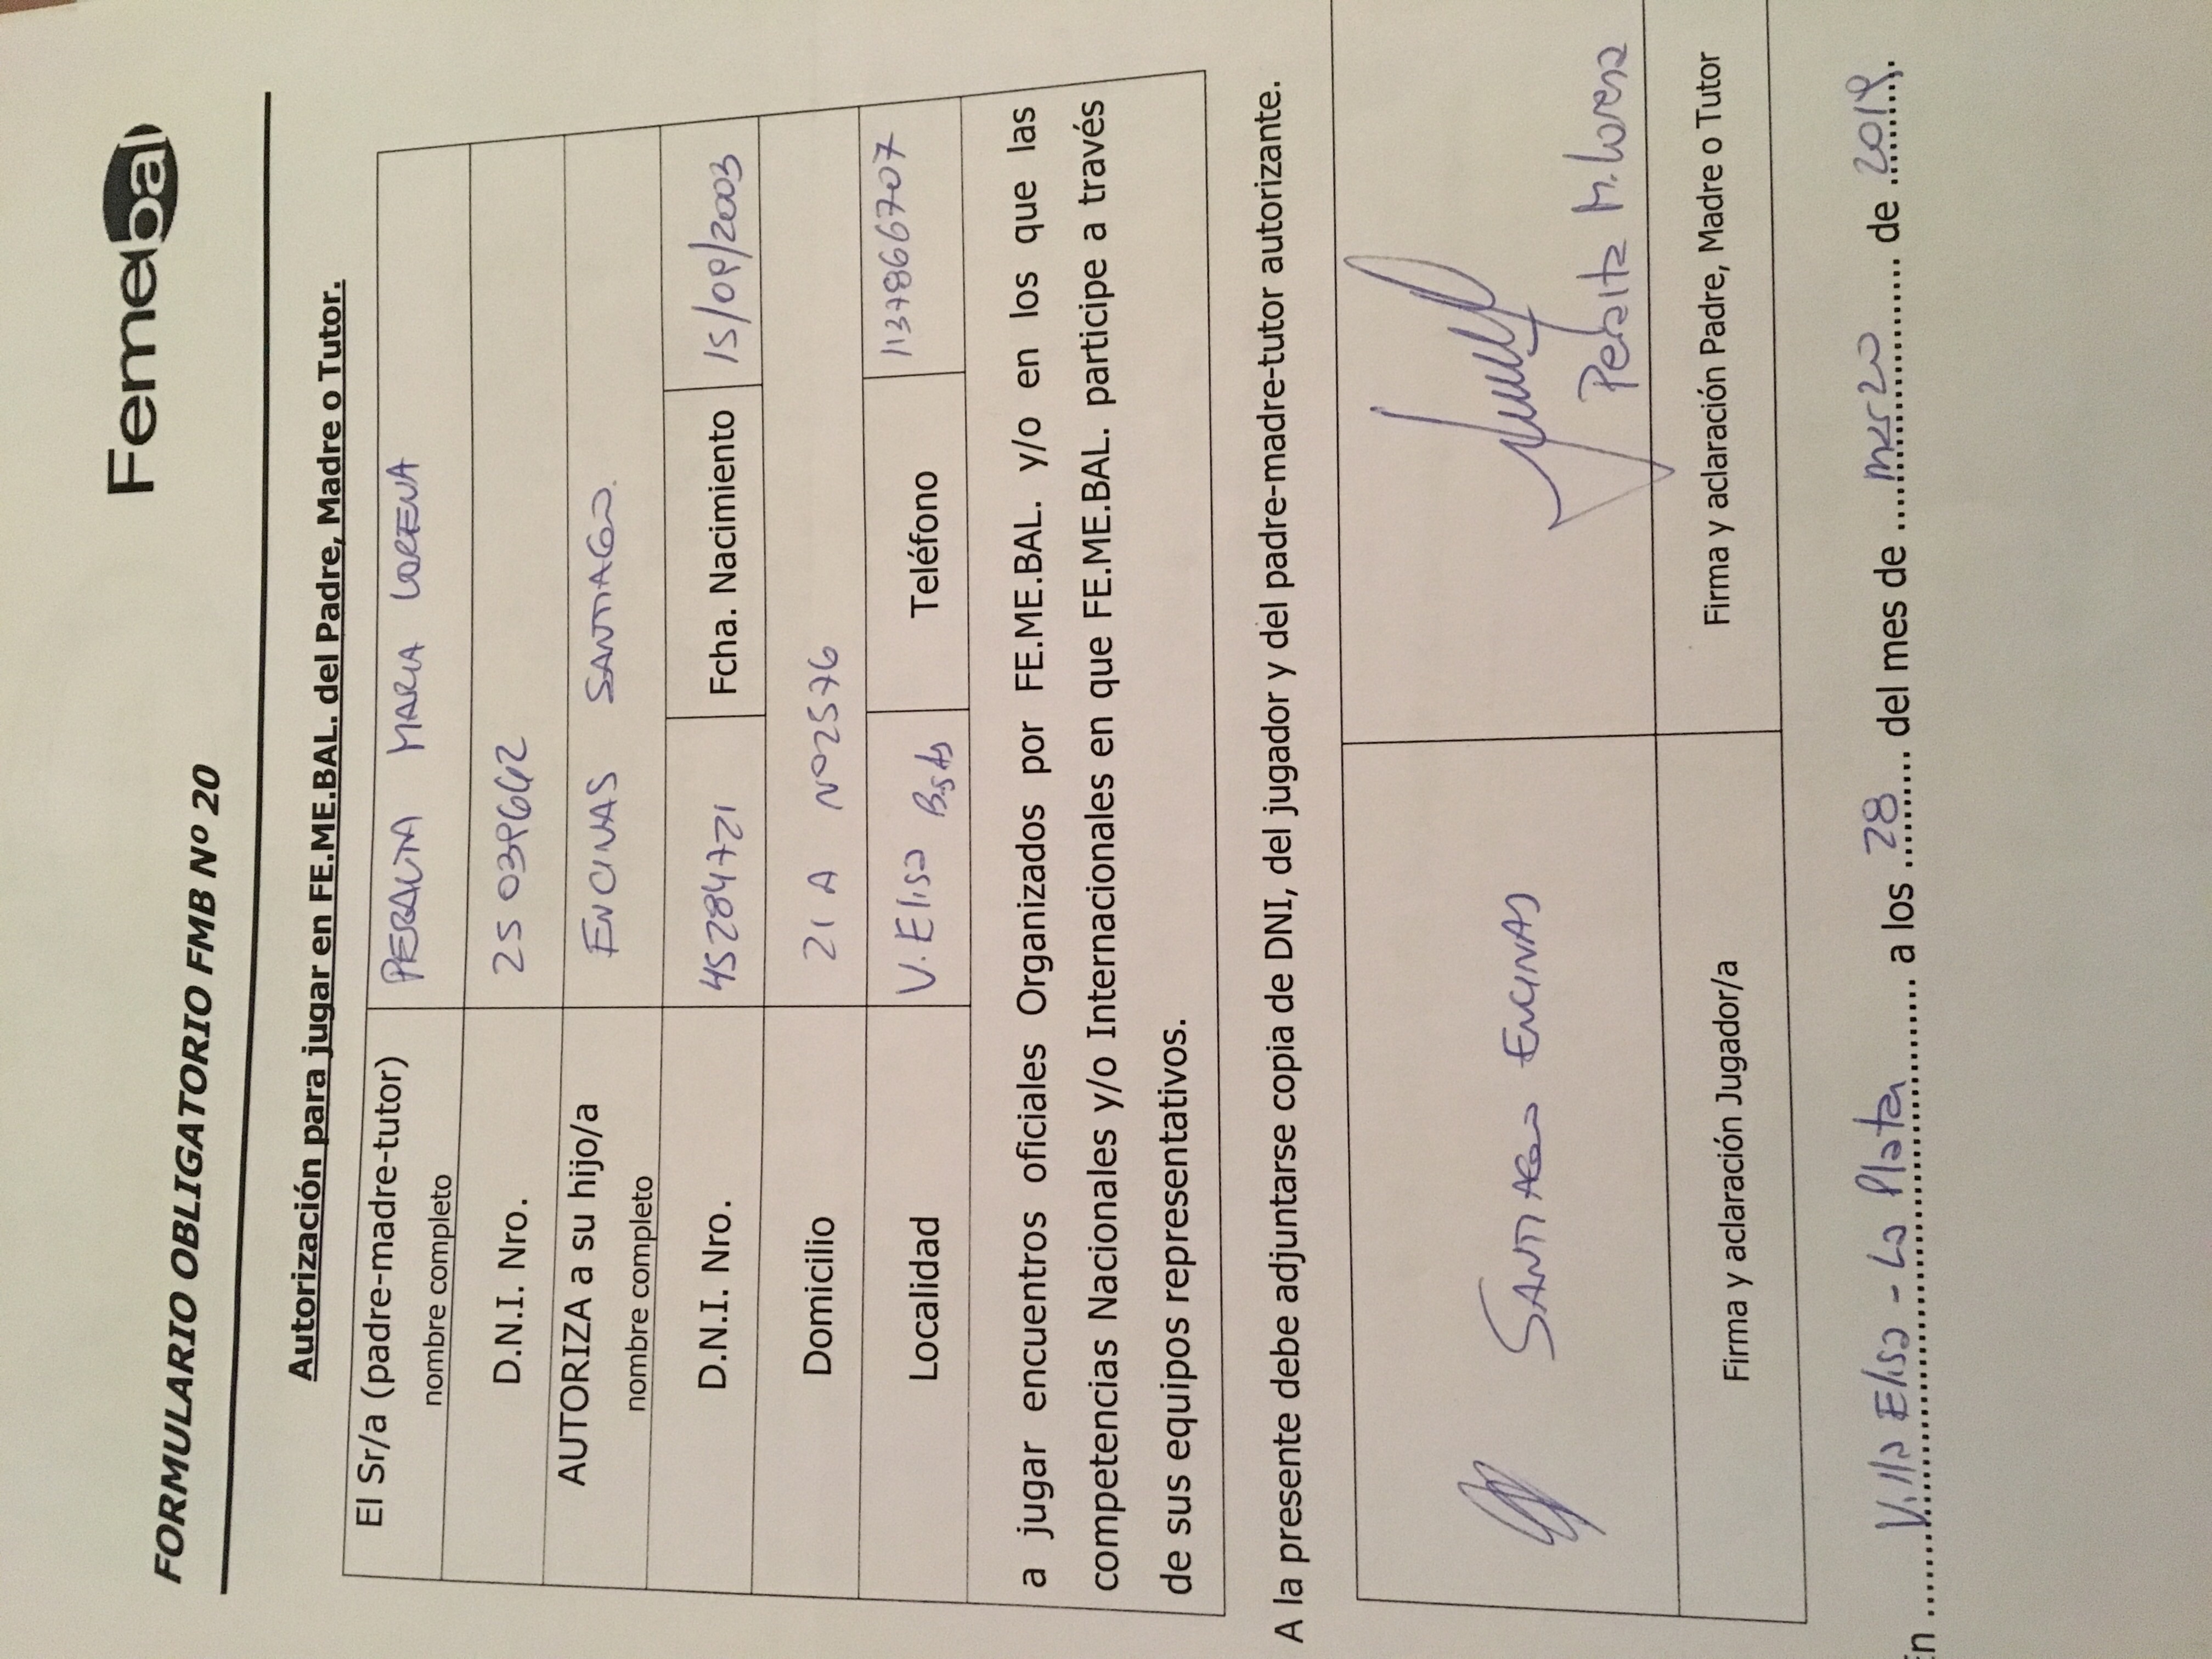 Femebal
FORMULARIO OBLIGATORIO FMB Nº 20
Autorización para jugar en FE.ME.BAL. del Padre, Madre o Tutor.
El Sr/a (padre-madre-tutor) PERALTA MARIA LORENA
nombre completo
D.N.I. Nro. 25 039642
AUTORIZA a su hijo/a ENCINAS SANTIAGO.
nombre completo
D.N.I. Nro. 45284721 Fcha. Nacimiento 15/09/2003
Domicilio 21 A Nº2576
Localidad V. Elisa Bs As Teléfono 1137866707
a jugar encuentros oficiales Organizados por FE.ME.BAL. y/o en los que las
competencias Nacionales y/o Internacionales en que FE.ME.BAL. participe a través
de sus equipos representativos.
A la presente debe adjuntarse copia de DNI, del jugador y del padre-madre-tutor autorizante.
SANTIAGO ENCINAS Peralta M. Lorena
Firma y aclaración Jugador/a Firma y aclaración Padre, Madre o Tutor
En Villa Elisa - La Plata a los 28 del mes de marzo de 2019.